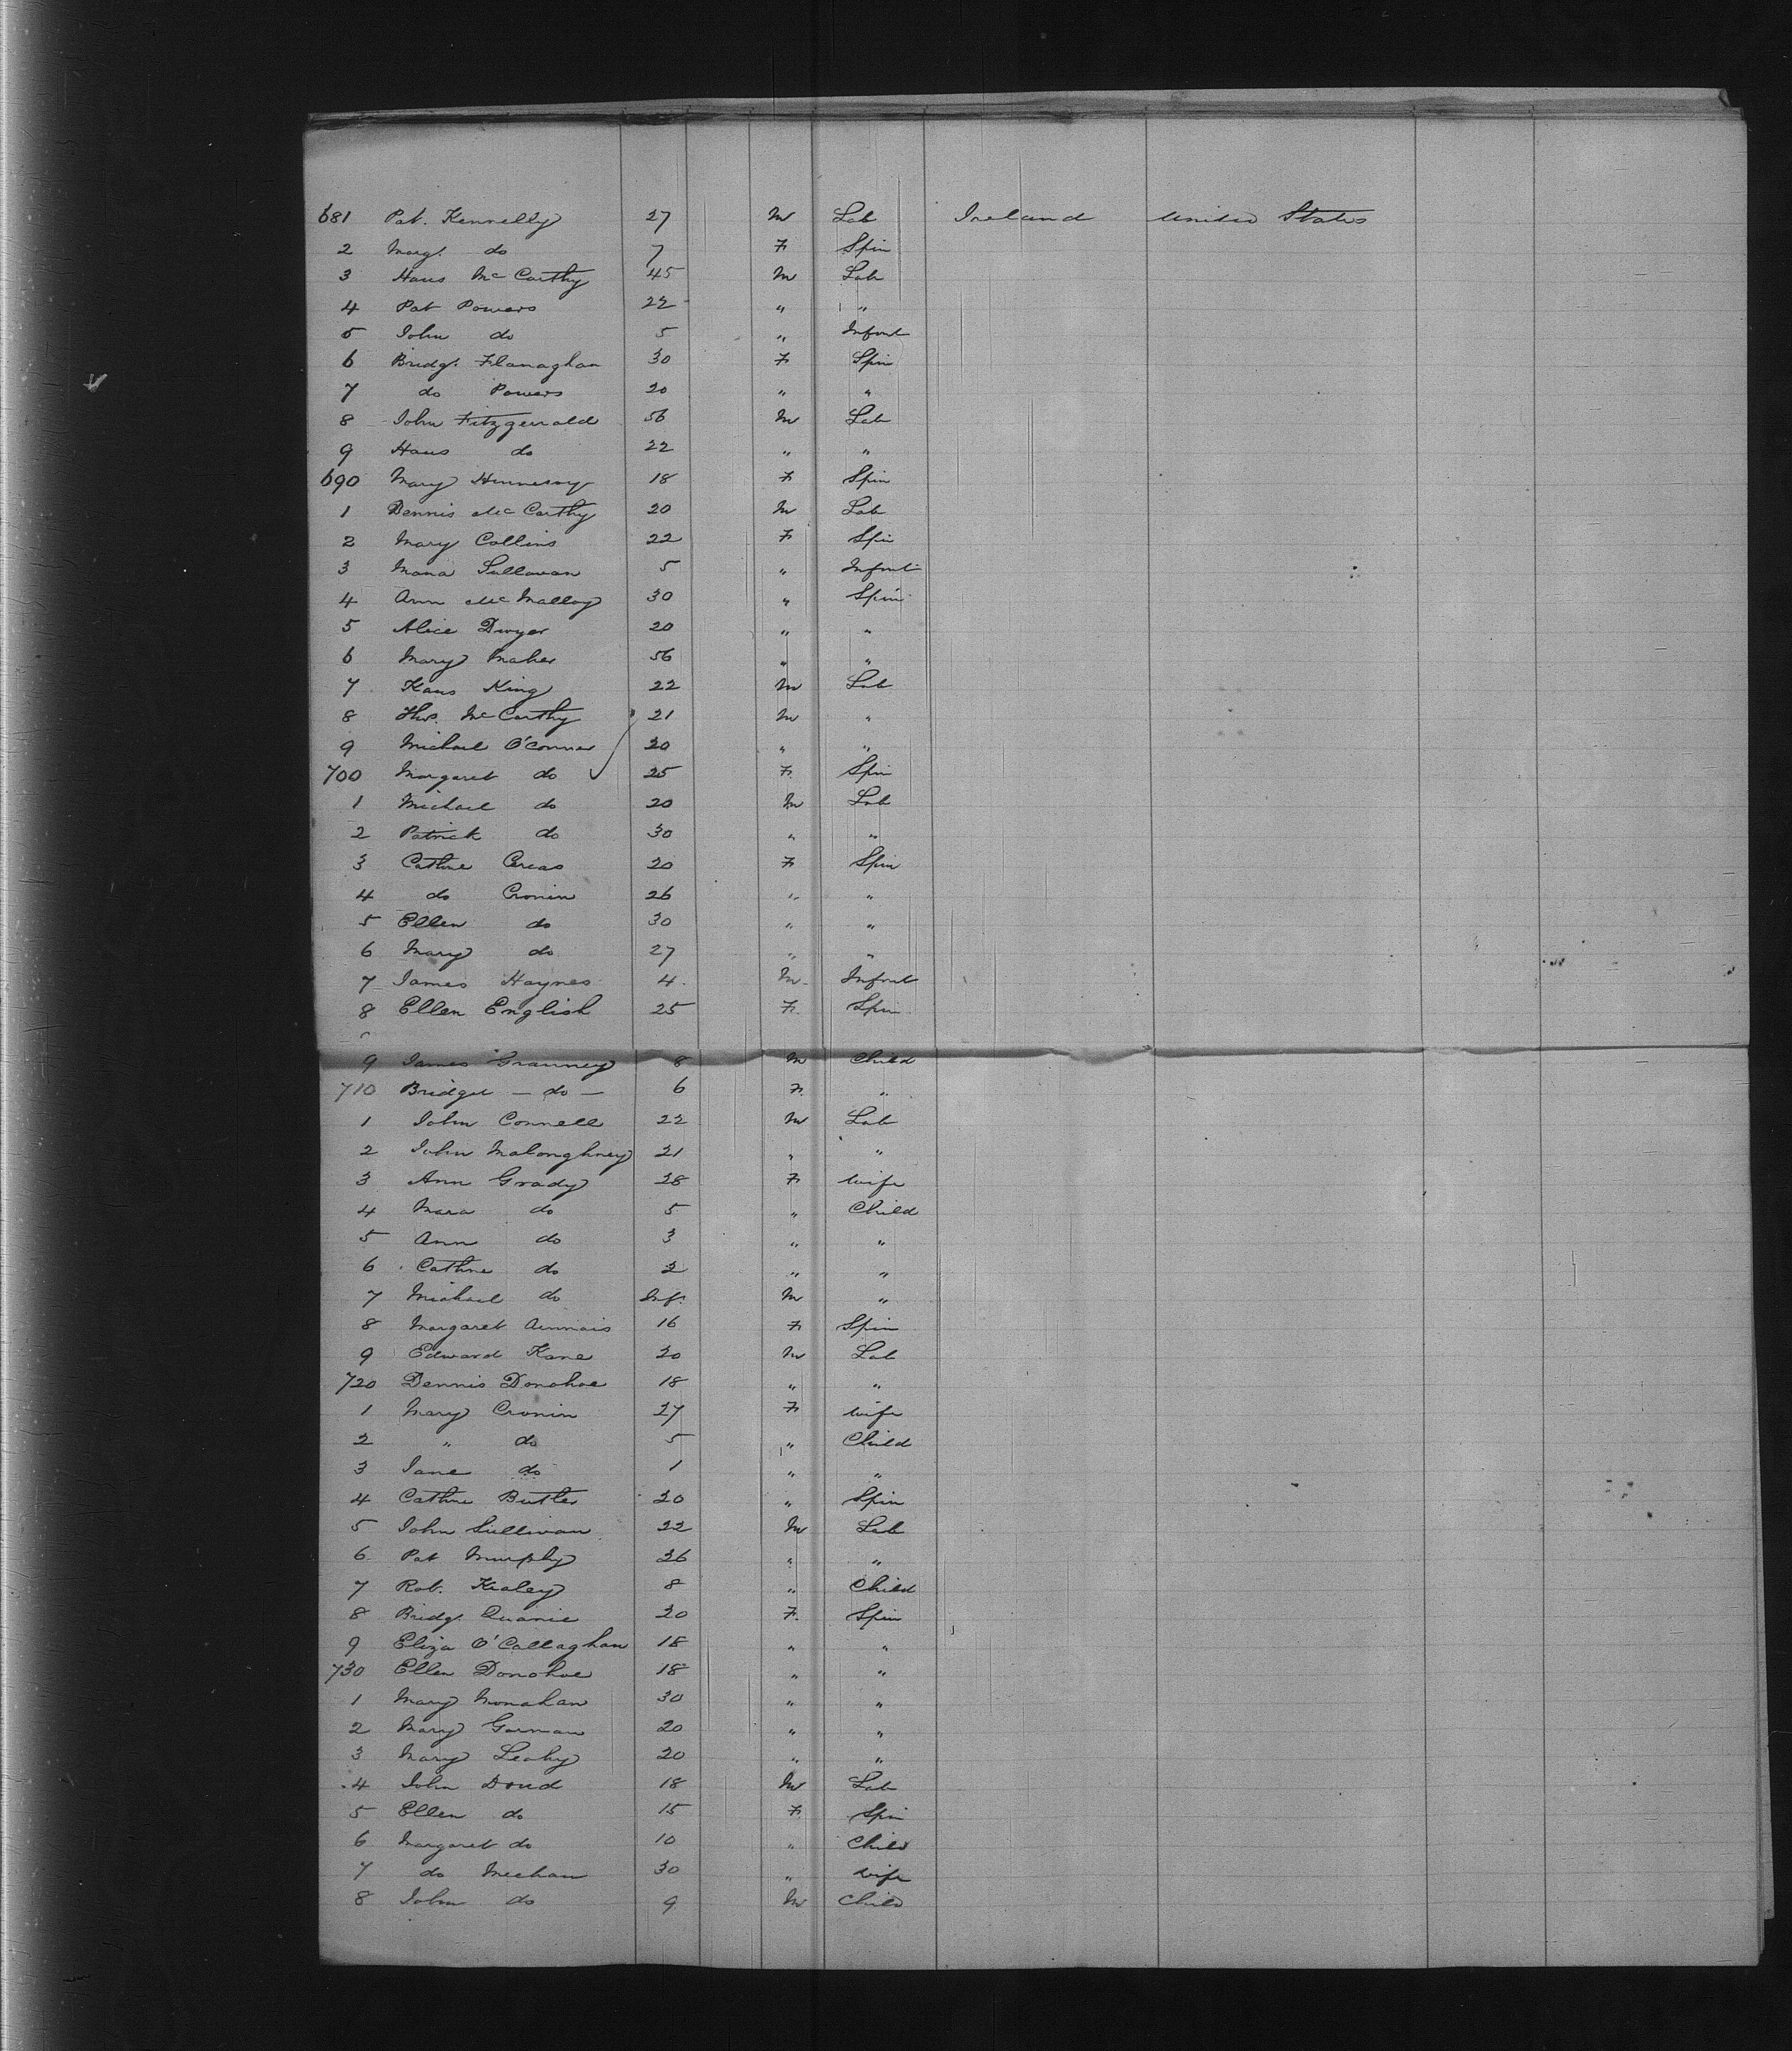 681 Pat. Kennelly 27 M Lab Ireland United States
2 Marg. do 7 F Spin
3 Hans McCarthy 45 M Lab
4 Pat Powers 22 " "
5 John do 5 " Infant
6 Bridg. Flanaghan 30 F Spin
7 do Powers 20 " "
8 John Fitzgerrald 56 M Lab
9 Hans do 22 " "
690 Mary Hennessy 18 F Spin
1 Dennis McCarthy 20 M Lab
2 Mary Collins 22 F Spin
3 Mana Sullavan 5 " Infant
4 Ann McMalloy 30 " Spin
5 Alice Dwyer 20 " "
6 Mary Maher 56 " "
7 Hans King 22 M Lab
8 Thos. McCarthy 21 M "
9 Michael O'Conner 20 " "
700 Margaret do 25 F Spin
1 Michael do 20 M Lab
2 Patrick do 30 " "
3 Cathne 20 F Spin
4 do Cronin 26 " "
5 Ellen do 30 " "
6 Mary do 27 " "
7 James Haynes 4 M Infant
8 Ellen English 25 F Spin
9 James Granney 8 M Child
710 Bridget - do - 6 F "
1 John Connell 22 M Lab
2 John Maloughney 21 " "
3 Ann Grady 28 F Wife
4 Mara do 5 " Child
5 Ann do 3 " "
6 Cathne do 2 " "
7 Michael do Inf. M "
8 Margaret 16 F Spin
9 Edward Kane 20 M Lab
720 Dennis Donohoe 18 " "
1 Mary Cronin 27 F Wife
2 " do 5 " Child
3 Jane do 1 " "
4 Cathne Butler 20 " Spin
5 John Sullivan 22 M Lab
6 Pat Murphy 26 " "
7 Rob. Kealey 8 " Child
8 Bridg. 20 F Spin
9 Eliza O'Callaghan 18 " "
730 Ellen Donohoe 18 " "
1 Mary Monahan 30 " "
2 Mary Gorman 20 " "
3 Mary Leahy 20 " "
4 John Doud 18 M Lab
5 Ellen do 15 F Spin
6 Margaret do 10 " Child
7 do Meehan 30 " Wife
8 John do 9 M Child